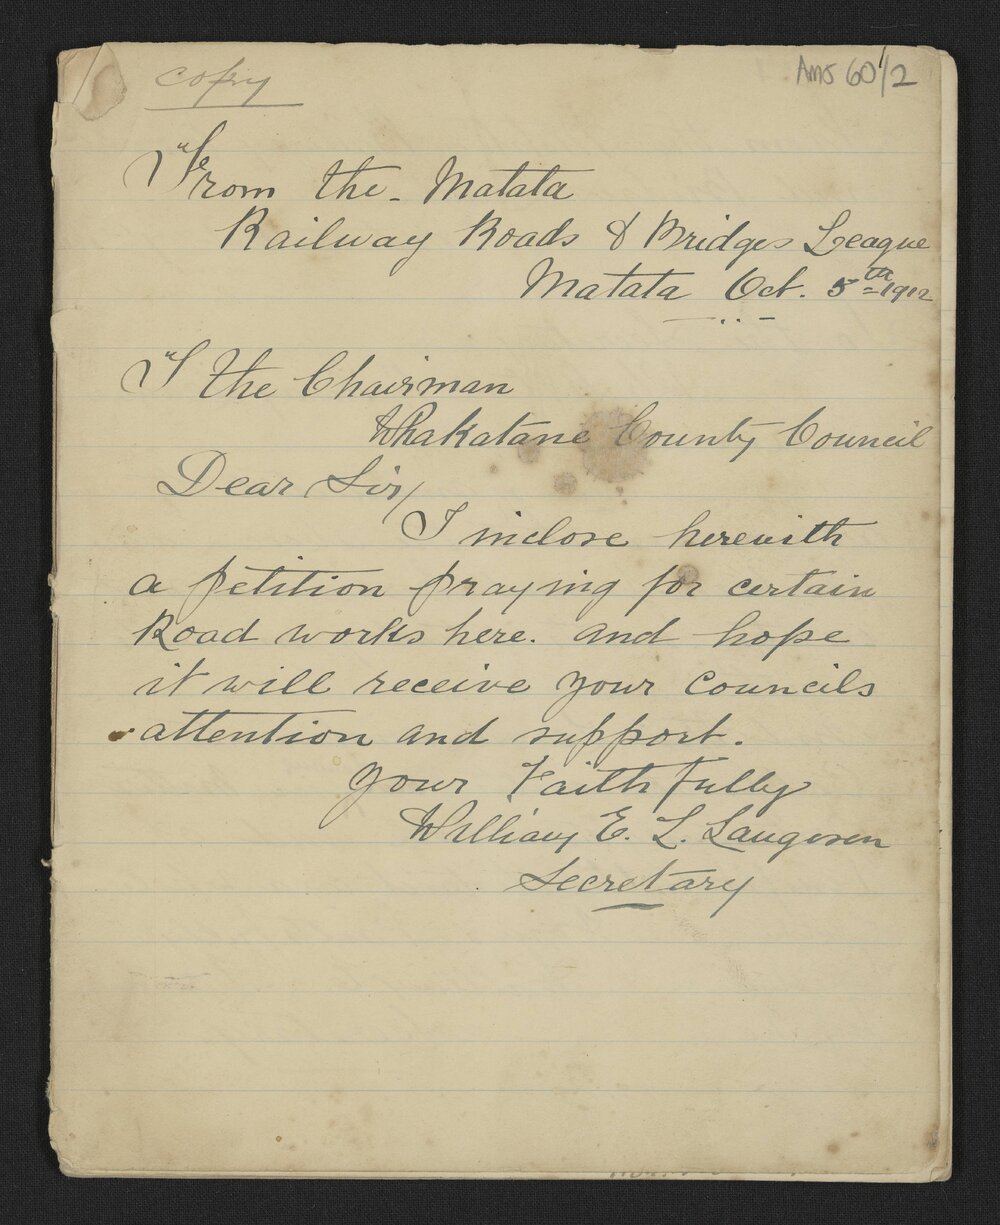 copy
AMS 60/2
From the - Matata
Railway Roads & Bridges League
Matata Oct. 5th 1912
The Chairman
Whakatane County Council
Dear Sir/
I inclose herewith
a petition praying for certain
Road works here. and hope
it will receive your councils
attention and support.
your Faithfully
William E. L. Langoren
Secretary